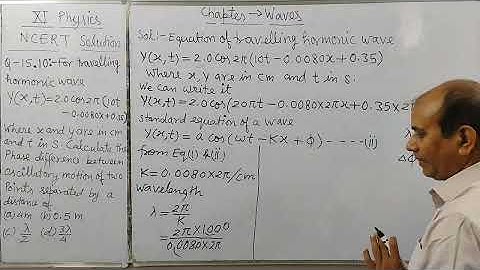 XI Physics
NCERT Solution
Q-15.10:- For travelling
harmonic wave
Y(x,t)=2.0cos2π(10t
-0.0080x+0.35)
Where x and y are in cm
and t in S. Calculate the
Phase difference between
oscillatory motion of two
Points separated by a
distance of
(a) 4m (b) 0.5 m
(c) λ/2 (d) 3λ/4
Chapter → Waves
Sol:- Equation of travelling harmonic wave
Y(x,t)=2.0cos2π(10t-0.0080x+0.35)
Where x,y are in cm and t in s.
We can write it
Y(x,t)=2.0cos(20πt-0.0080x2πx+0.35x2π
standard equation of a wave
Y(x,t)= a cos(ωt-Kx+φ)-----(ii)
from Eq(i) &(ii)
K=0.0080x2π/cm
wavelength
λ = 2π/K
= 2πx1000/0.0080x2π
λ
Δφ